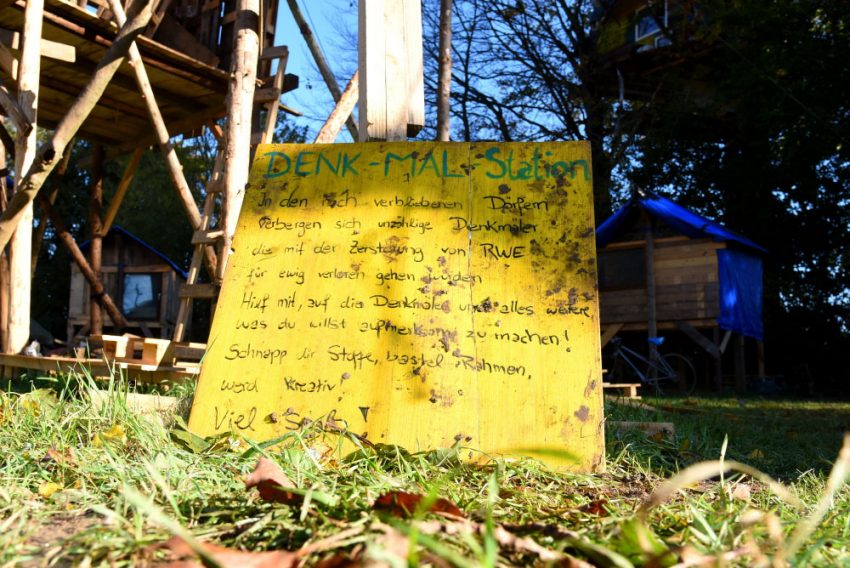 DENK-MAL-Station
In den noch verbliebenen Dörfern
verbergen sich unzählige Denkmäler
die mit der Zerstörung von RWE
für ewig verloren gehen würden
Hilf mit, auf die Denkmäler und alles weitere
was du willst aufmerksam zu machen!
Schnapp dir Stoffe, bastel Rahmen,
werd kreativ!
Viel Spaß!